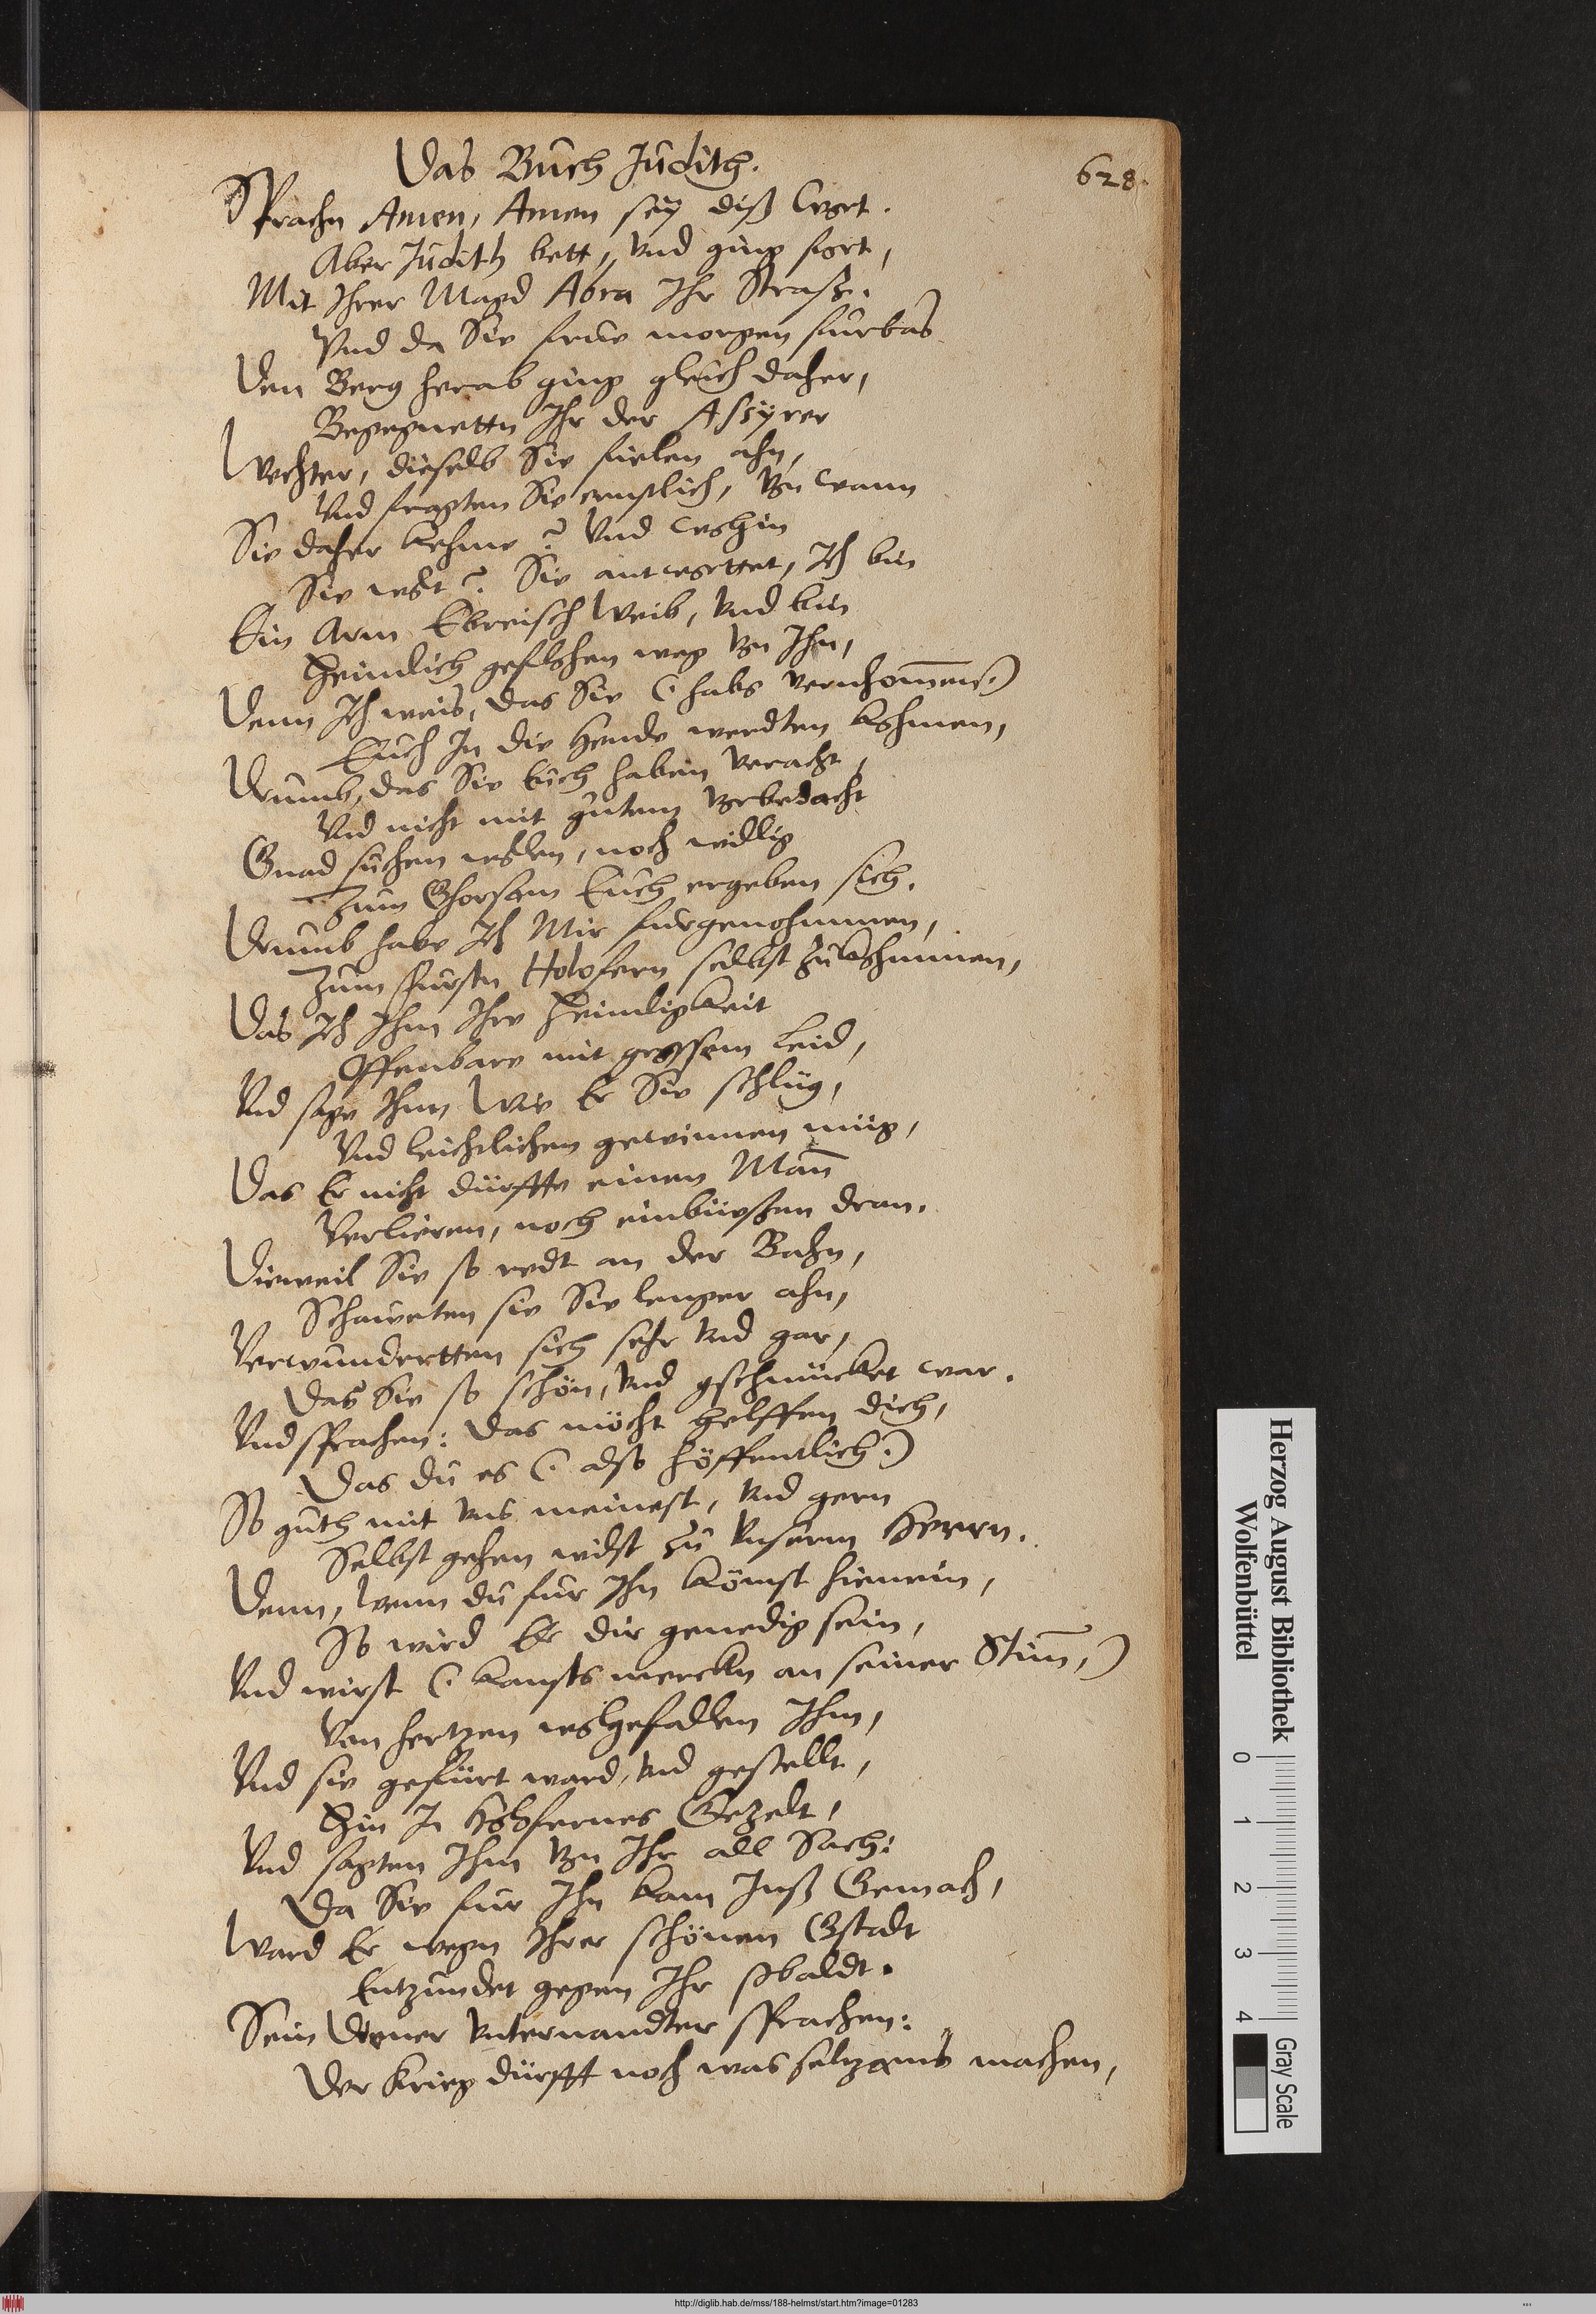 Das Buch Judith.
628.
Sprachn Amen, Amen sey diß Wort.
Aber Judith bett, vnd ging fort,
Mit Ihrer Magd Abra Ihr Straß.
Vnd da Sie frue morgen furbas
Den Berg herab ging gleich daher,
Begegnettn Ihr der Assyrer
Wechter, dieselb Sie fielen ahn,
Vnd fragten Sie ernstlich, Von wann
Sie daher kehme? Vnd wohin
Sie wolt? Sie antworttet, Ich bin
Ein Arm Ebreisch Weib, vnd bin
Heimlich geflohen weg von Ihn,
Denn Ich weis, das Sie (: habs vernhom̄ens:)
Euch In die Hende werdten kohmen,
Drumb, das Sie Euch haben veracht,
Vnd nicht mit gutem Vorbedacht
Gnad suchen wollen, noch willig
Zum Ghorsam Euch ergeben sich.
Drumb habe Ich Mir furgenohmmen,
Zum fursten Holofern selbst zu kohmmen,
Das Ich Ihm Ihre Heimligkeit
Offenbare mit grossem Leid,
Vnd sage Ihm Wie Er Sie schlüg,
Vnd leichtlichen gewinnen müg,
Das Er nicht dürffte einen Man̄
Verlieren, noch einbüeßen dran.
Dieweil Sie so redt an der Bahn,
Schaweten sie Sie lenger ahn,
Verwundertten sich sehr vnd gar,
Das Sie so schön, vnd gschmücket war.
Vnd sprachen: Das möcht helffen dich,
Das du es (: also höffentlich:)
So guth mit vns meinest, vnd gern
Selbst gehen wilst zu vnserm Herrn.
Denn, wenn du fur Ihn kömst hinein,
So wird Er dir genedig sein,
Vnd wirst (: kansts mercken an seiner Stim̄,)
Von hertzen wolgefallen Ihm,
Vnd sie gefürt ward, vnd gestellt,
Hin In Holofernes Gezelt,
Vnd sagten Ihm von Ihr all Sach:
Da Sie fur Ihn kam Inß Gemach,
Ward Er wegn Ihrer schönen Gstadt
Entzundet gegen Ihr sobaldt.
Sein Diener vnternandter sprachen:
Der Krieg dürfft noch was seltzams machen,
Herzog August Bibliothek
Wolfenbüttel
0 1 2 3 4
Gray Scale
http://diglib.hab.de/mss/188-helmst/start.htm?image=01283